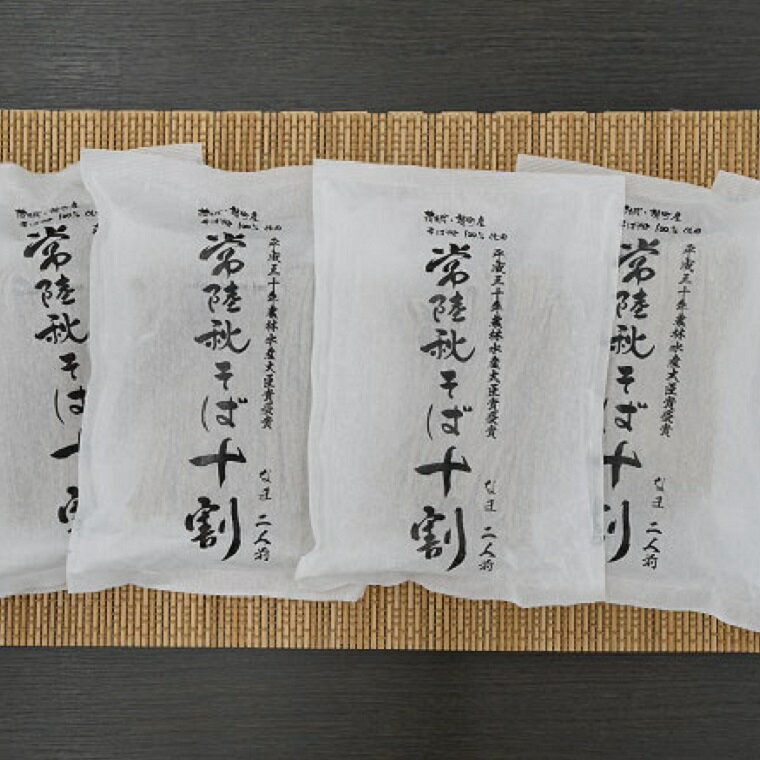 そば粉 100% 使用
常陸秋そば十割
そば粉 100% 使用
平成三十年農林水産大臣賞受賞
常陸秋そば十割
なま 二人前
そば粉 100% 使用
平成三十年農林水産大臣賞受賞
常陸秋そば十割
なま 二人前
そば粉 100% 使用
平成三十年農林水産大臣賞受賞
常陸秋そば十割
なま 二人前